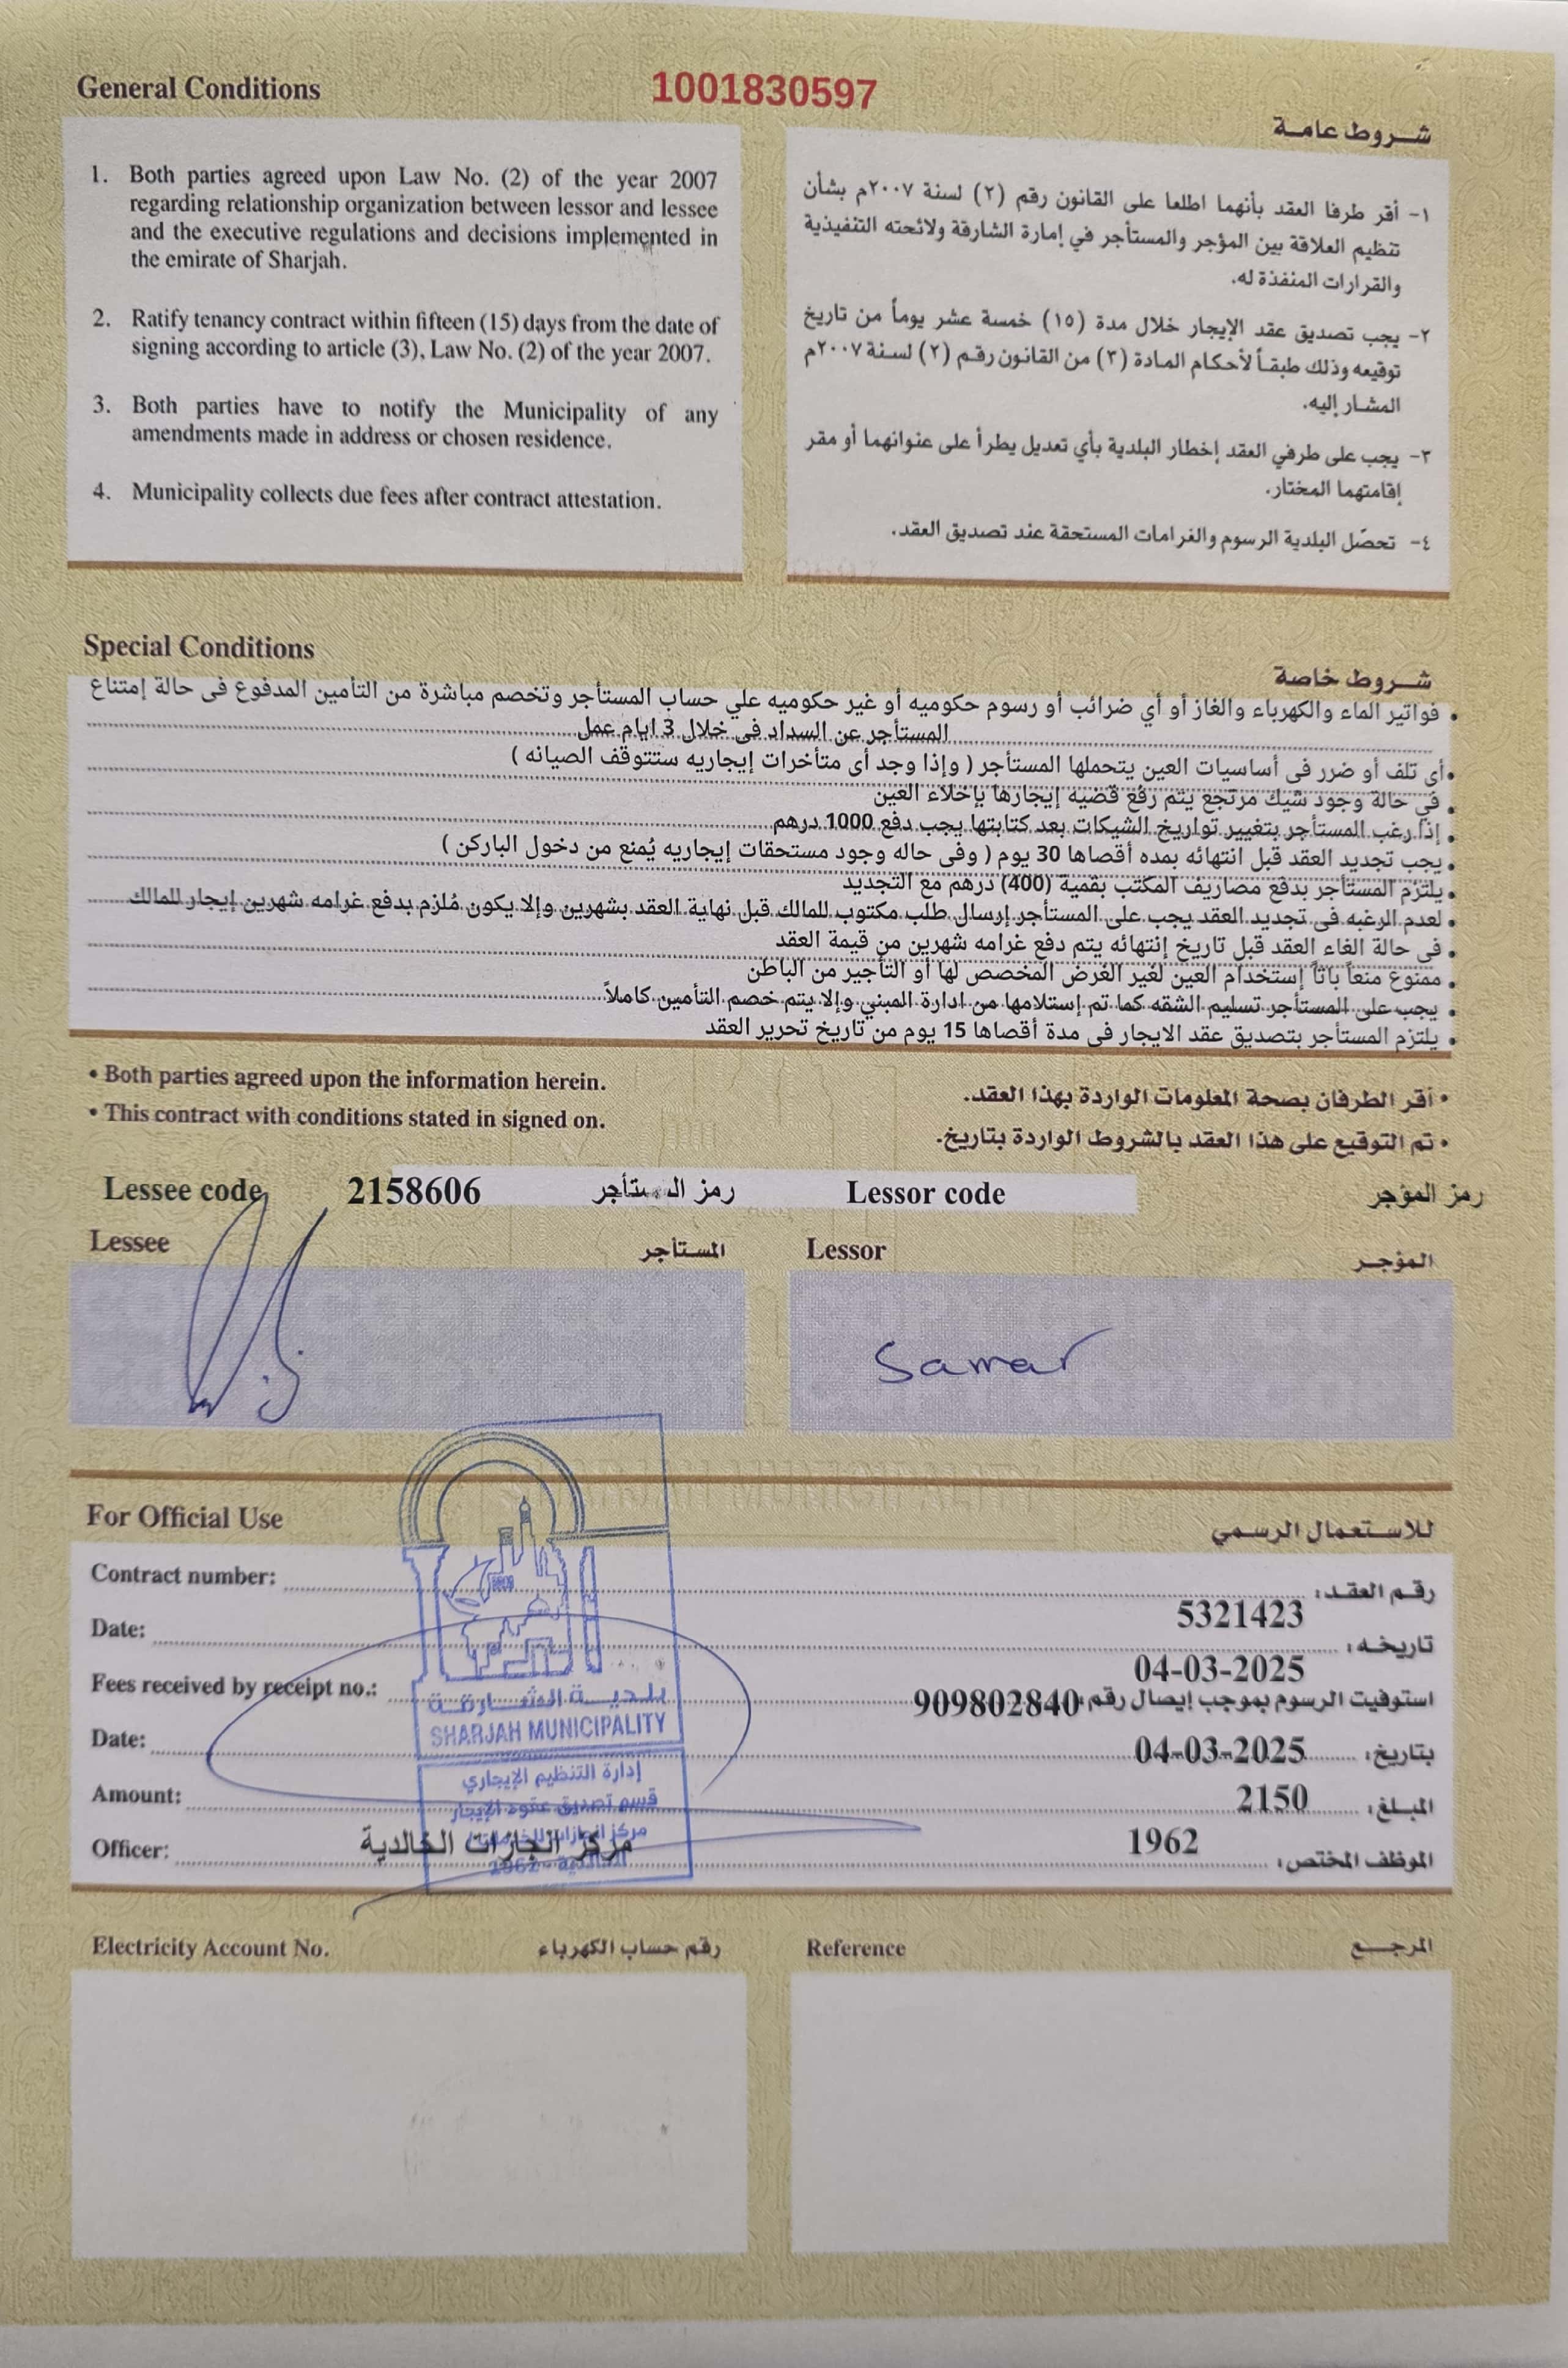 General Conditions
1001830597
شروط عامة
1. Both parties agreed upon Law No. (2) of the year 2007
regarding relationship organization between lessor and lessee
and the executive regulations and decisions implemented in
the emirate of Sharjah.
2. Ratify tenancy contract within fifteen (15) days from the date of
signing according to article (3), Law No. (2) of the year 2007.
3. Both parties have to notify the Municipality of any
amendments made in address or chosen residence.
4. Municipality collects due fees after contract attestation.
١- أقر طرفا العقد بأنهما اطلعا على القانون رقم (٢) لسنة ٢٠٠٧م بشأن
تنظيم العلاقة بين المؤجر والمستأجر في إمارة الشارقة ولائحته التنفيذية
والقرارات المنفذة له.
٢- يجب تصديق عقد الإيجار خلال مدة (١٥) خمسة عشر يوماً من تاريخ
توقيعه وذلك طبقاً لأحكام المادة (٣) من القانون رقم (٢) لسنة ٢٠٠٧م
المشار إليه.
٣- يجب على طرفي العقد إخطار البلدية بأي تعديل يطرأ على عنوانهما أو مقر
إقامتهما المختار.
٤- تحصّل البلدية الرسوم والغرامات المستحقة عند تصديق العقد.
Special Conditions
شروط خاصة
• فواتير الماء والكهرباء والغاز أو أي ضرائب أو رسوم حكوميه أو غير حكوميه علي حساب المستأجر وتخصم مباشرة من التأمين المدفوع فى حالة إمتناع
المستأجر عن السداد فى خلال 3 ايام عمل
• أى تلف أو ضرر فى أساسيات العين يتحملها المستأجر ( وإذا وجد أى متأخرات إيجاريه ستتوقف الصيانه )
• في حالة وجود شيك مرتجع يتم رفع قضيه إيجارها بإخلاء العين
• إذا رغب المستأجر بتغيير تواريخ الشيكات بعد كتابتها يجب دفع 1000 درهم
• يجب تجديد العقد قبل انتهائه بمده أقصاها 30 يوم ( وفى حاله وجود مستحقات إيجاريه يُمنع من دخول الباركن )
• يلتزم المستأجر بدفع مصاريف المكتب بقمية (400) درهم مع التجديد
• لعدم الرغبه فى تجديد العقد يجب على المستأجر إرسال طلب مكتوب للمالك قبل نهاية العقد بشهرين وإلا يكون مُلزم بدفع غرامه شهرين إيجار للمالك
• فى حالة الغاء العقد قبل تاريخ إنتهائه يتم دفع غرامه شهرين من قيمة العقد
• ممنوع منعاً باتاً إستخدام العين لغير الغرض المخصص لها أو التأجير من الباطن
• يجب على المستأجر تسليم الشقه كما تم إستلامها من ادارة المبني وإلا يتم خصم التأمين كاملاً
• يلتزم المستأجر بتصديق عقد الايجار فى مدة أقصاها 15 يوم من تاريخ تحرير العقد
• Both parties agreed upon the information herein.
• This contract with conditions stated in signed on.
• أقر الطرفان بصحة المعلومات الواردة بهذا العقد.
• تم التوقيع على هذا العقد بالشروط الواردة بتاريخ.
Lessee code 2158606 رمز المستأجر Lessor code رمز المؤجر
Lessee المستأجر Lessor المؤجر
Samar
For Official Use للاستعمال الرسمي
Contract number: رقم العقد:
5321423
Date: تاريخه:
04-03-2025
Fees received by receipt no.: 909802840 استوفيت الرسوم بموجب إيصال رقم:
Date: 04-03-2025 بتاريخ:
Amount: 2150 المبلغ:
Officer: مركز انجازات الخالدية 1962 الموظف المختص:
بلدية الشارقة
SHARJAH MUNICIPALITY
إدارة التنظيم الإيجاري
قسم تصديق عقود الإيجار
Electricity Account No. رقم حساب الكهرباء Reference المرجع